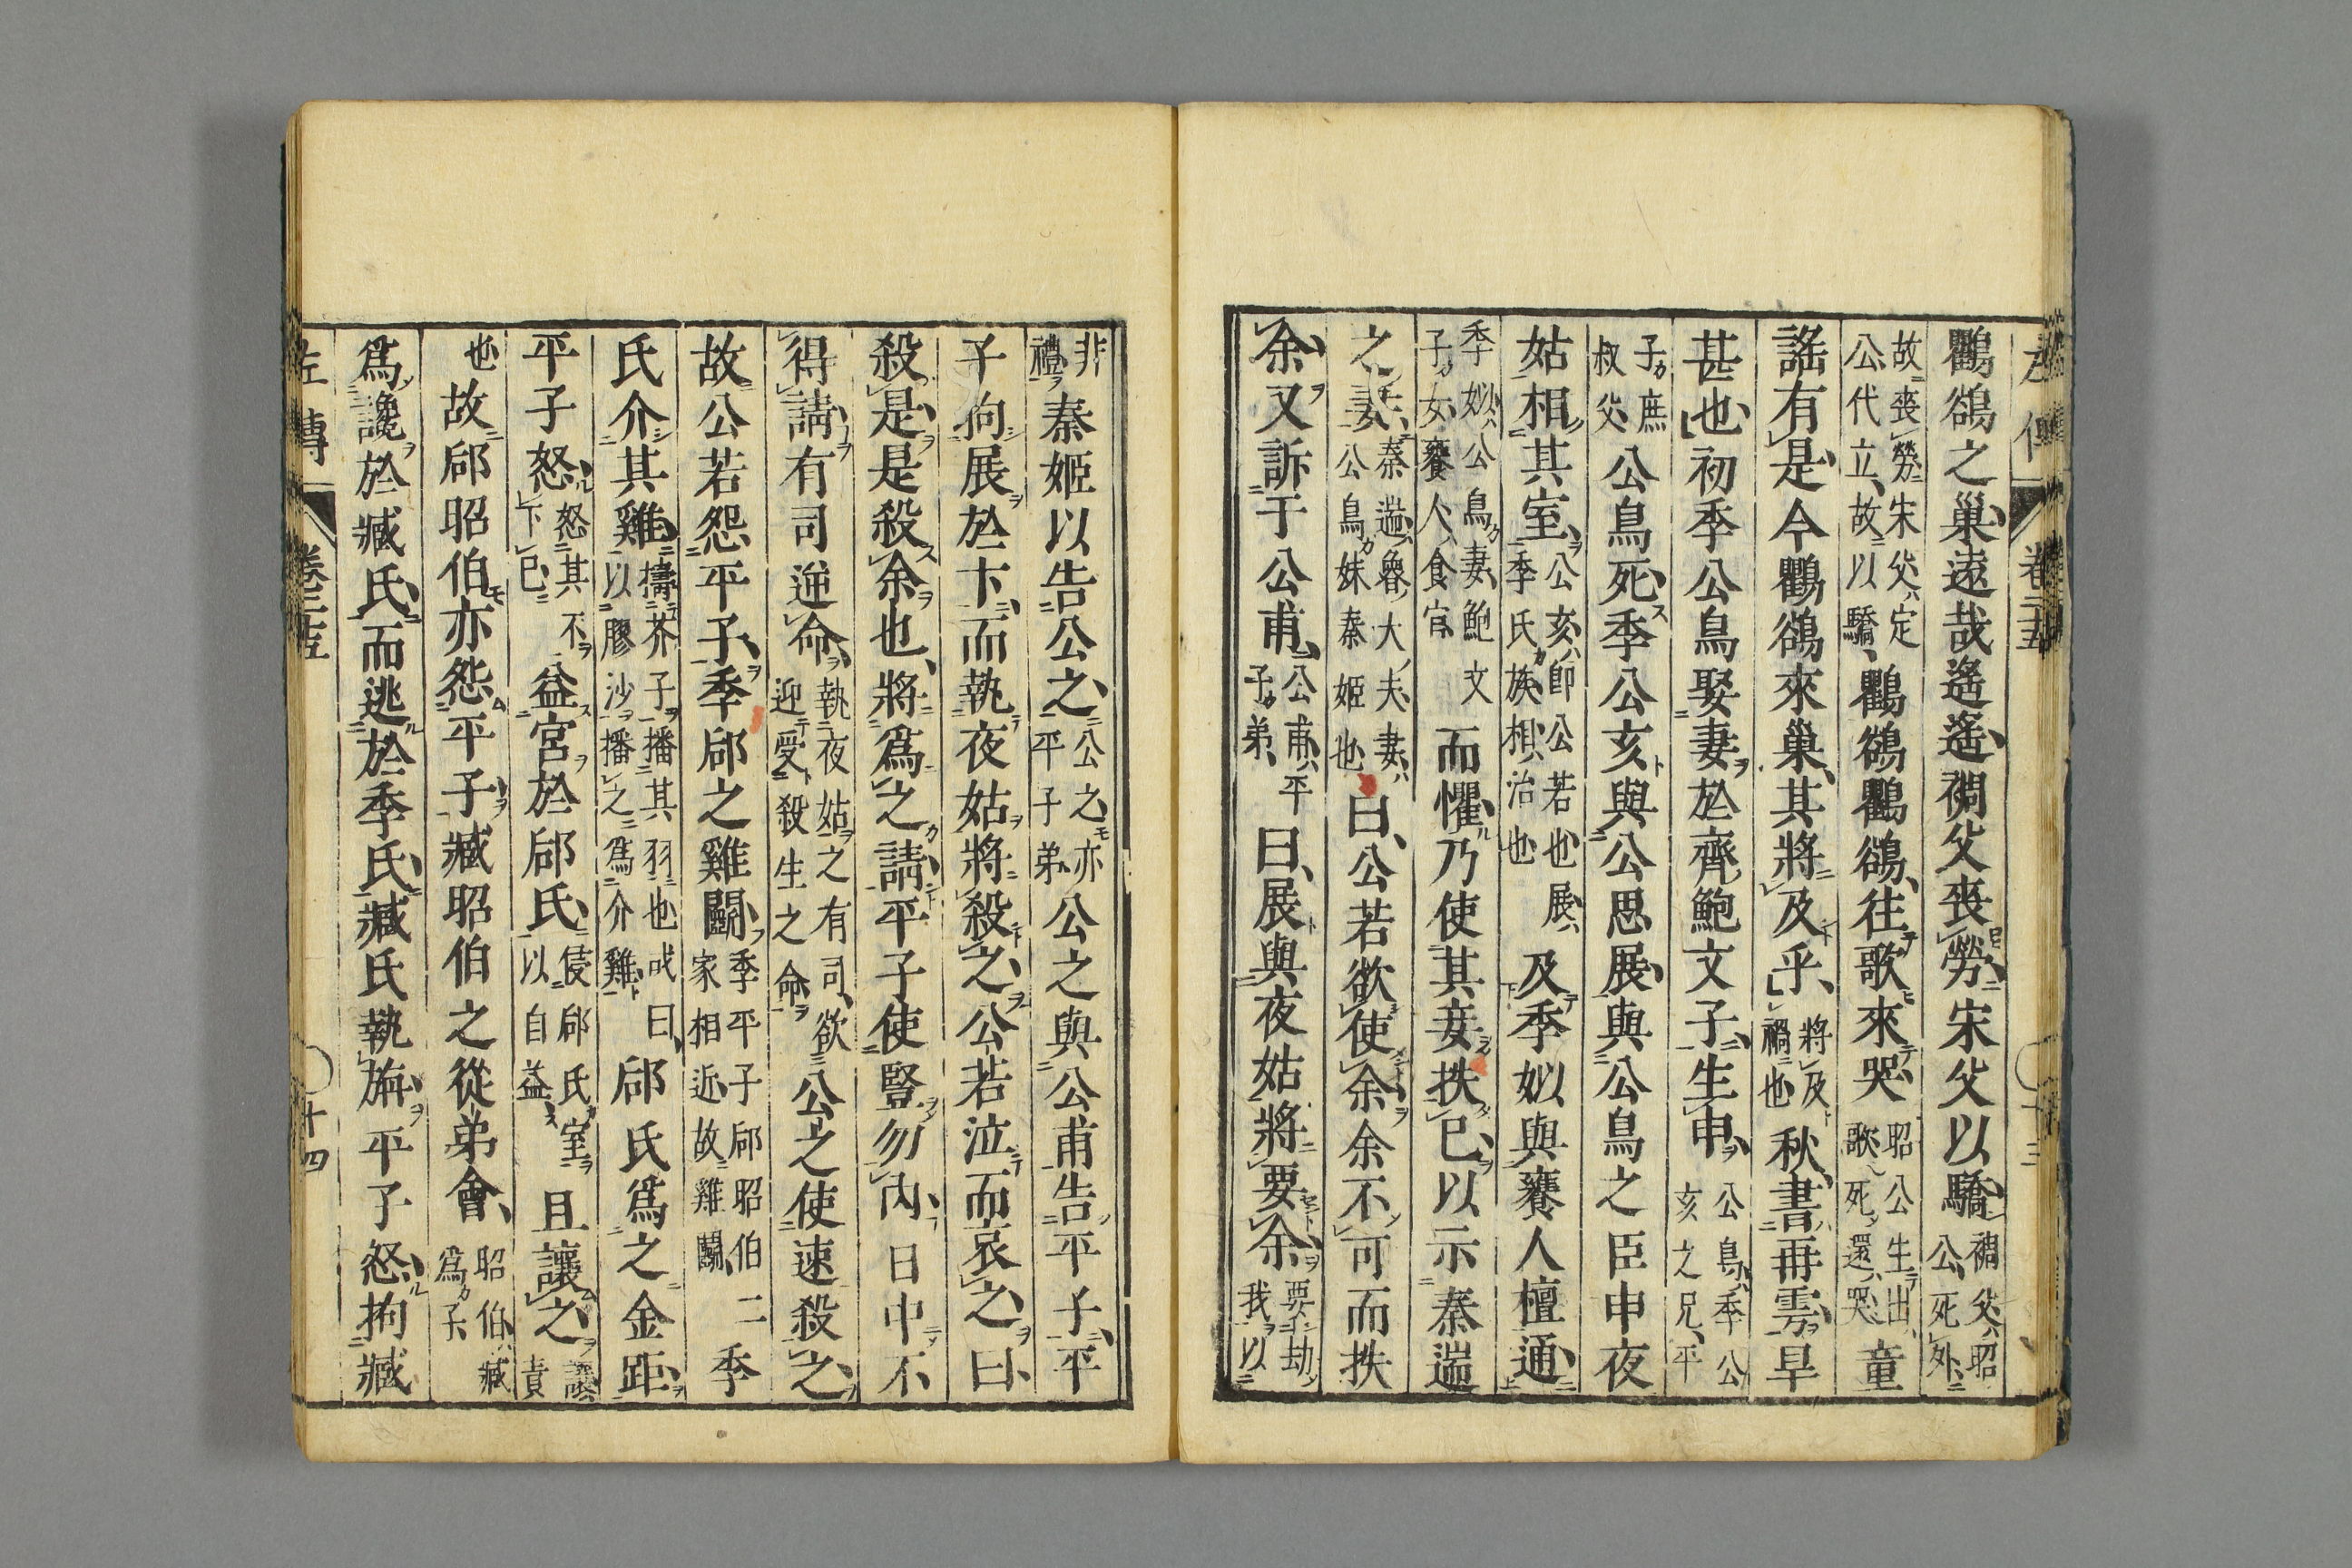 左傳 卷二十五 十三
鸜鵒之巢遠哉遙遙裯父喪勞宋父以驕裯父昭公死外
故喪勞宋父定公代立故以驕鸜鵒鸜鵒往歌來哭昭公生出歌死還哭童
謠有是今鸜鵒來巢其將及乎將及禍也秋書再雩旱
甚也初季公鳥娶妻於齊鮑文子生申公鳥季公亥之兄平
子庶叔父公鳥死季公亥與公思展與公鳥之臣申夜
姑相其室公亥即公若也展季氏族相治也及季姒與饔人檀通
季姒公鳥妻鮑文子女饔人食官而懼乃使其妾抶已以示秦遄
之妻秦遄魯大夫妻公鳥妹秦姬也曰公若欲使余余不可而抶
余又訴于公甫公甫平子弟曰展與夜姑將要余要劫我以
非禮秦姬以告公之公之亦平子弟公之與公甫告平子平
子拘展於卞而執夜姑將殺之公若泣而哀之曰
殺是是殺余也將為之請平子使豎勿內日中不
得請有司逆命執夜姑之有司欲迎受殺生之命公之使速殺之
故公若怨平子季郈之雞鬬季平子郈昭伯二家相近故雞鬬季
氏介其雞擣芥子播其羽也或曰以膠沙播之為介雞郈氏爲之金距
平子怒怒其不下已益宮於郈氏侵郈氏室以自益且讓之讓責
也故郈昭伯亦怨平子臧昭伯之從弟會昭伯臧為子
爲讒於臧氏而逃於季氏臧氏執旃平子怒拘臧
左傳 卷二十五 十四